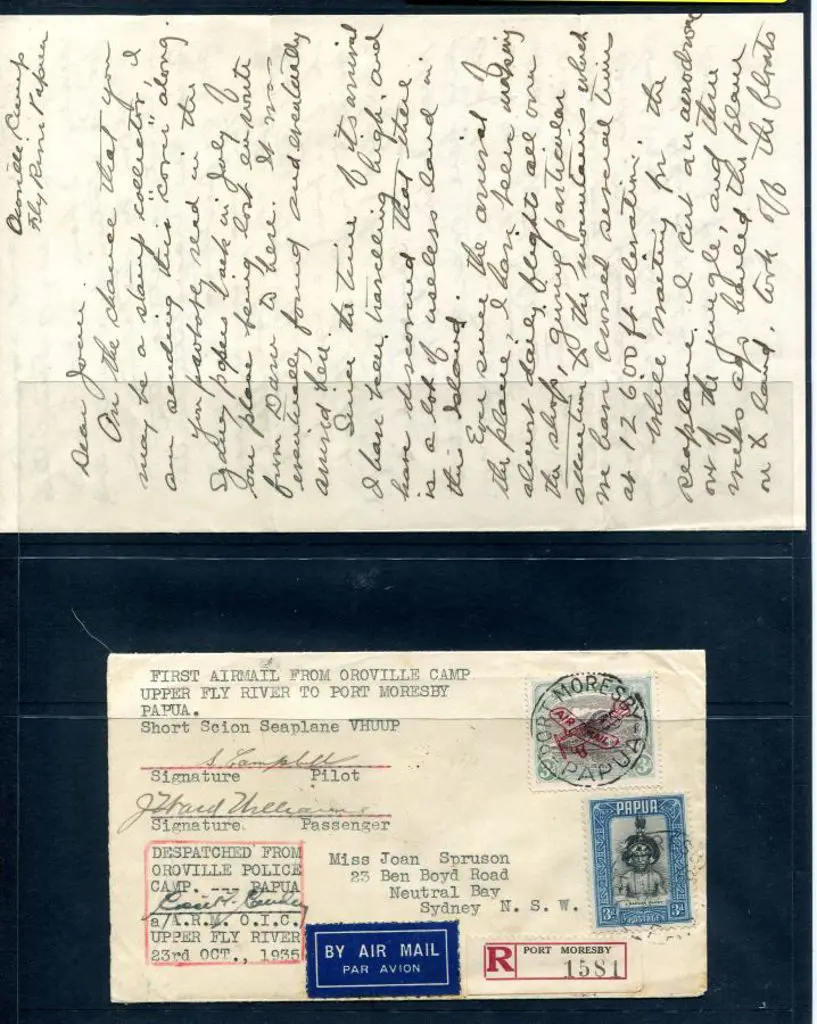 Oroville Camp
Fly River Papua
Dear Joan.
On the chance that you
may be a stamp collector, I
am sending this "cover" along.
you probably read in the
Sydney papers back in July of
our plane being lost en route
from Daru to here. It was
eventually found and eventually
arrived here.
Since the time of its arrival
I have been travelling high, and
have discovered that there
is a lot of useless land in
this Island.
Ever since the arrival of
the plane I have been making
almost daily flights all over
the shop, giving particular
attention to the mountains which
we have crossed several times
at 12,600 ft elevation.
While waiting for the
seaplane. I cut an aerodrome
out of the jungle, and three
weeks ago hauled the plane
on to land, took off the floats
FIRST AIRMAIL FROM OROVILLE CAMP
UPPER FLY RIVER TO PORT MORESBY
PAPUA.
Short Scion Seaplane VHUUP
S. Campbell
Signature Pilot
J Ward Williams
Signature. Passenger
DESPATCHED FROM
OROVILLE POLICE
CAMP. --- PAPUA
a/A.R.M. O.I.C.
UPPER FLY RIVER
23rd OCT., 1935
Miss Joan Spruson
23 Ben Boyd Road
Neutral Bay
Sydney N. S. W.
PORT MORESBY
PAPUA
AIR MAIL
3d
PAPUA
POSTAGE
3d 3d
BY AIR MAIL
PAR AVION
R PORT MORESBY
1581